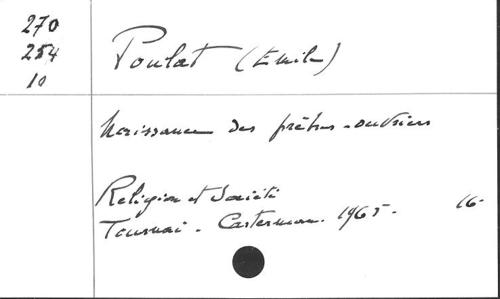 270
254
10
Poulat (Emile)
Naissance des prêtres-ouvriers
Religion et Société
Tournai. Casterman. 1965. 16.